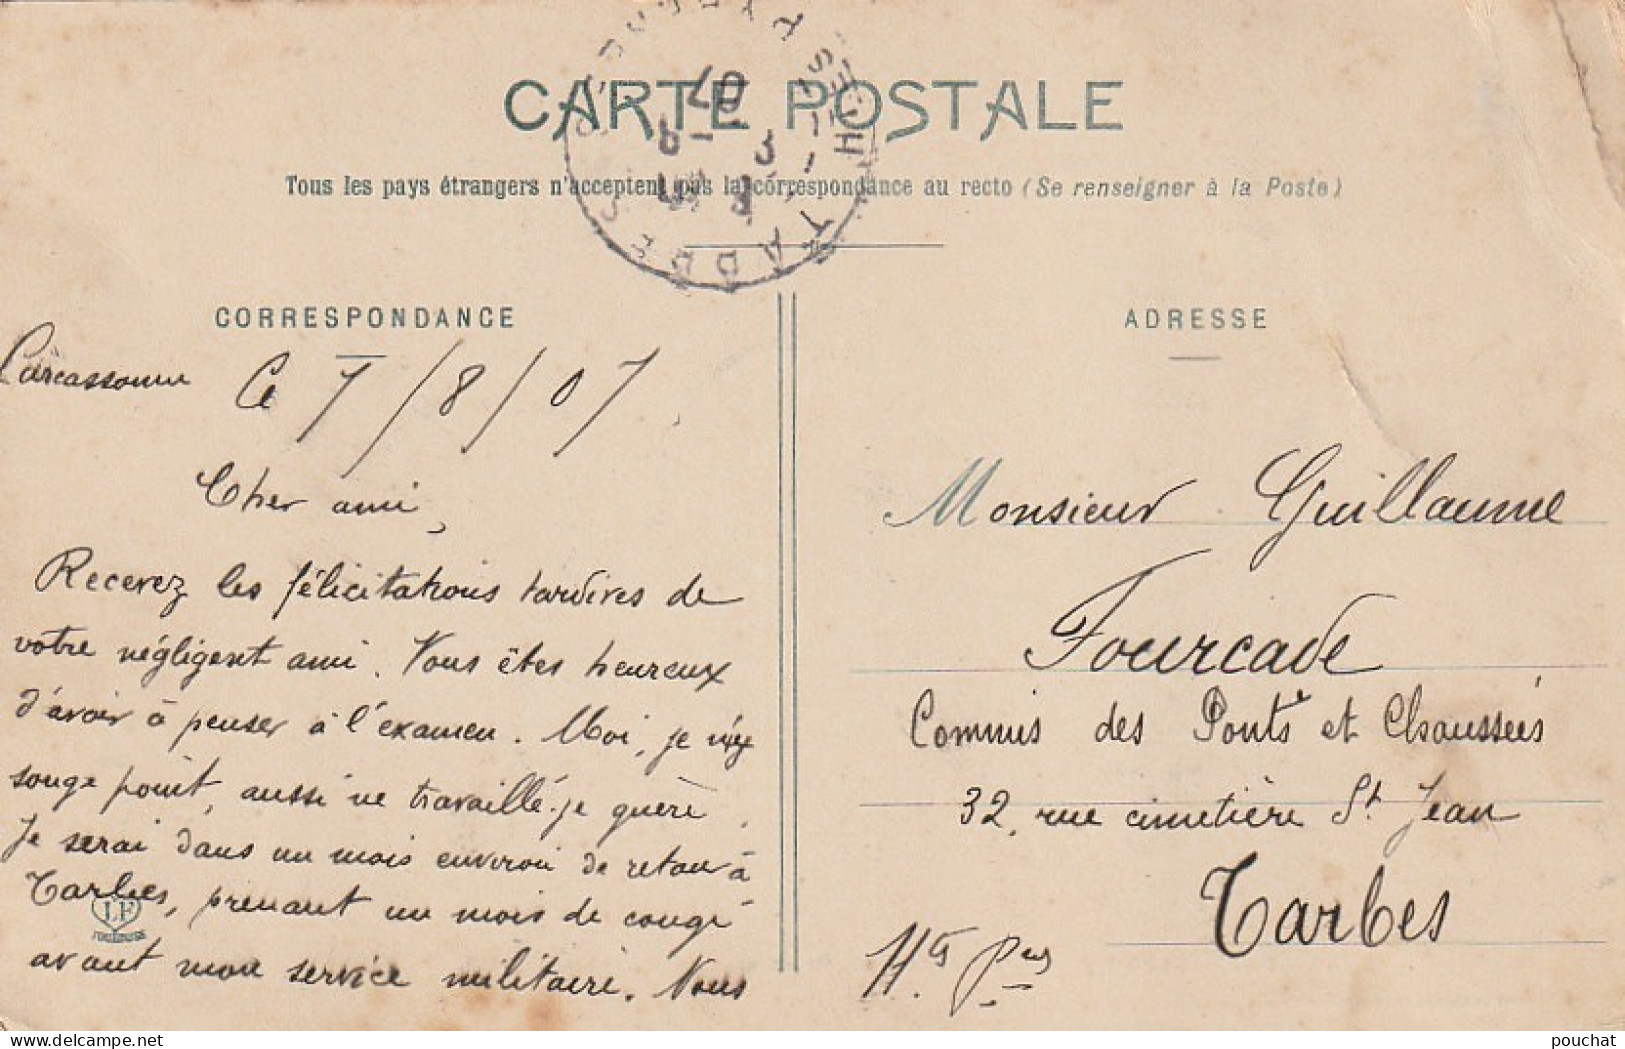 CARTE POSTALE
Tous les pays étrangers n'acceptent pas la correspondance au recto (Se renseigner à la Poste)
TARBES
07
CORRESPONDANCE
Carcassonne Ce 7/8/07
Cher ami,
Recevez les félicitations tardives de
votre négligent ami. Vous êtes heureux
d'avoir à penser à l'examen. Moi, je n'y
songe point, aussi ne travaillé-je guère.
Je serai dans un mois environ de retour à
Tarbes, prenant un mois de congé
avant mon service militaire. Nous
LF
ADRESSE
Monsieur Guillaume
Fourcade
Commis des Ponts et Chaussées
32, rue cimetière St Jean
Tarbes
Htes Pées
www.delcampe.net
pouchat